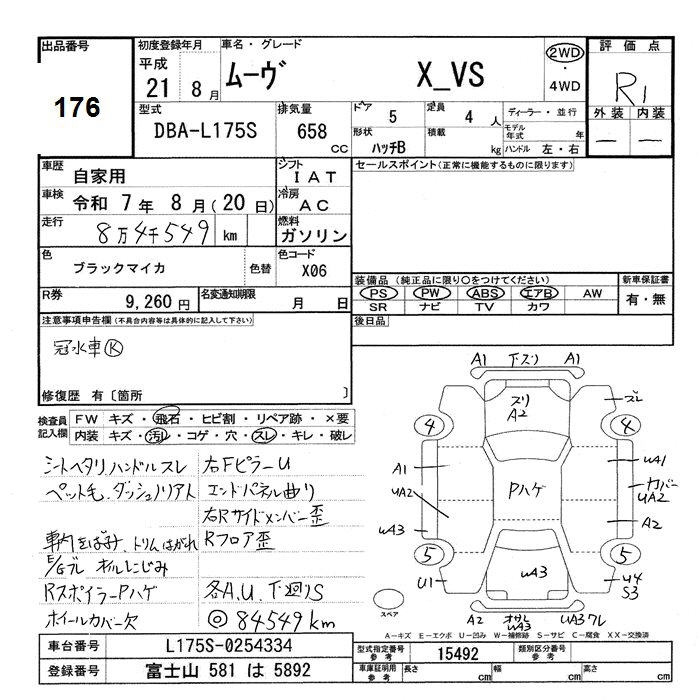 出品番号 初度登録年月 車名・グレード 評価点
176
平成 21年 8月 ムーヴ X_VS 2WD・4WD R1
型式 排気量 ドア 5 定員 4人 ディーラー・並行 外装 内装
DBA-L175S 658cc 形状 ハッチB 積載 kg モデル年式 年 ハンドル 左・右 — —
車歴 自家用 シフト IAT セールスポイント(正常に機能するものに限ります)
車検 令和 7年 8月(20日) 冷房 AC
走行 8万4千549 km 燃料 ガソリン
色 ブラックマイカ 色替 色コード X06
装備品 (純正品に限り○をつけてください) 新車保証書
R券 9,260円 名変通知期限 月 日 PS PW ABS エアB AW 有・無
SR ナビ TV カワ
注意事項申告欄(不具合内容等は具体的に記入して下さい) 後日品
冠水車Ⓚ
修復歴 有〔箇所 〕
検査員記入欄 FW キズ・飛石・ヒビ割・リペア跡・×要
内装 キズ・汚レ・コゲ・穴・スレ・キレ・破レ
シートヘタリ ハンドルスレ 右FピラーU
ペット毛、ダッシュノリアト エンドパネル曲り
右Rサイドメンバー歪
トリムはがれ Rフロア歪
E/Gブレ オイルにじみ
RスポイラーPハゲ 各A.U. 下廻りS
ホイールカバー欠 ◎84549km
A1 下ズリ A1
ズリ A2 ズレ
4 4
A1 UA1
UA2 Pハゲ カバー UA2
UA3 A2
5 5
U1 UA3 U4 S3
スペア A2 UA3 UA3 ワレ
A-キズ E-エクボ U-凹み W-補修跡 S-サビ C-腐食 XX-交換済
車台番号 L175S-0254334 型式指定番号 参考 15492 類別区分番号 参考
登録番号 富士山 581 は 5892 車庫証明用 参考 長さ cm 幅 cm 高さ cm